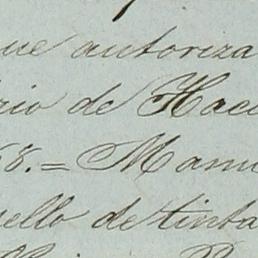 que autoriza
rio de Haci
58.= Manu
ello de tinta